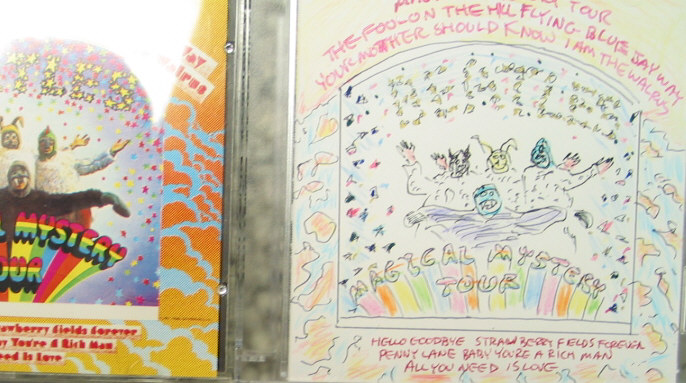 Way
alrus
L MYSTERY
OUR
rawberry Fields Forever
y You're A Rich Man
eed Is Love
TOUR
THE FOOL ON THE HILL FLYING BLUE JAY WAY
YOUR MOTHER SHOULD KNOW I AM THE WALRUS
MAGICAL MYSTERY
TOUR
HELLO GOODBYE STRAWBERRY FIELDS FOREVER
PENNY LANE BABY YOU'RE A RICH MAN
ALL YOU NEED IS LOVE